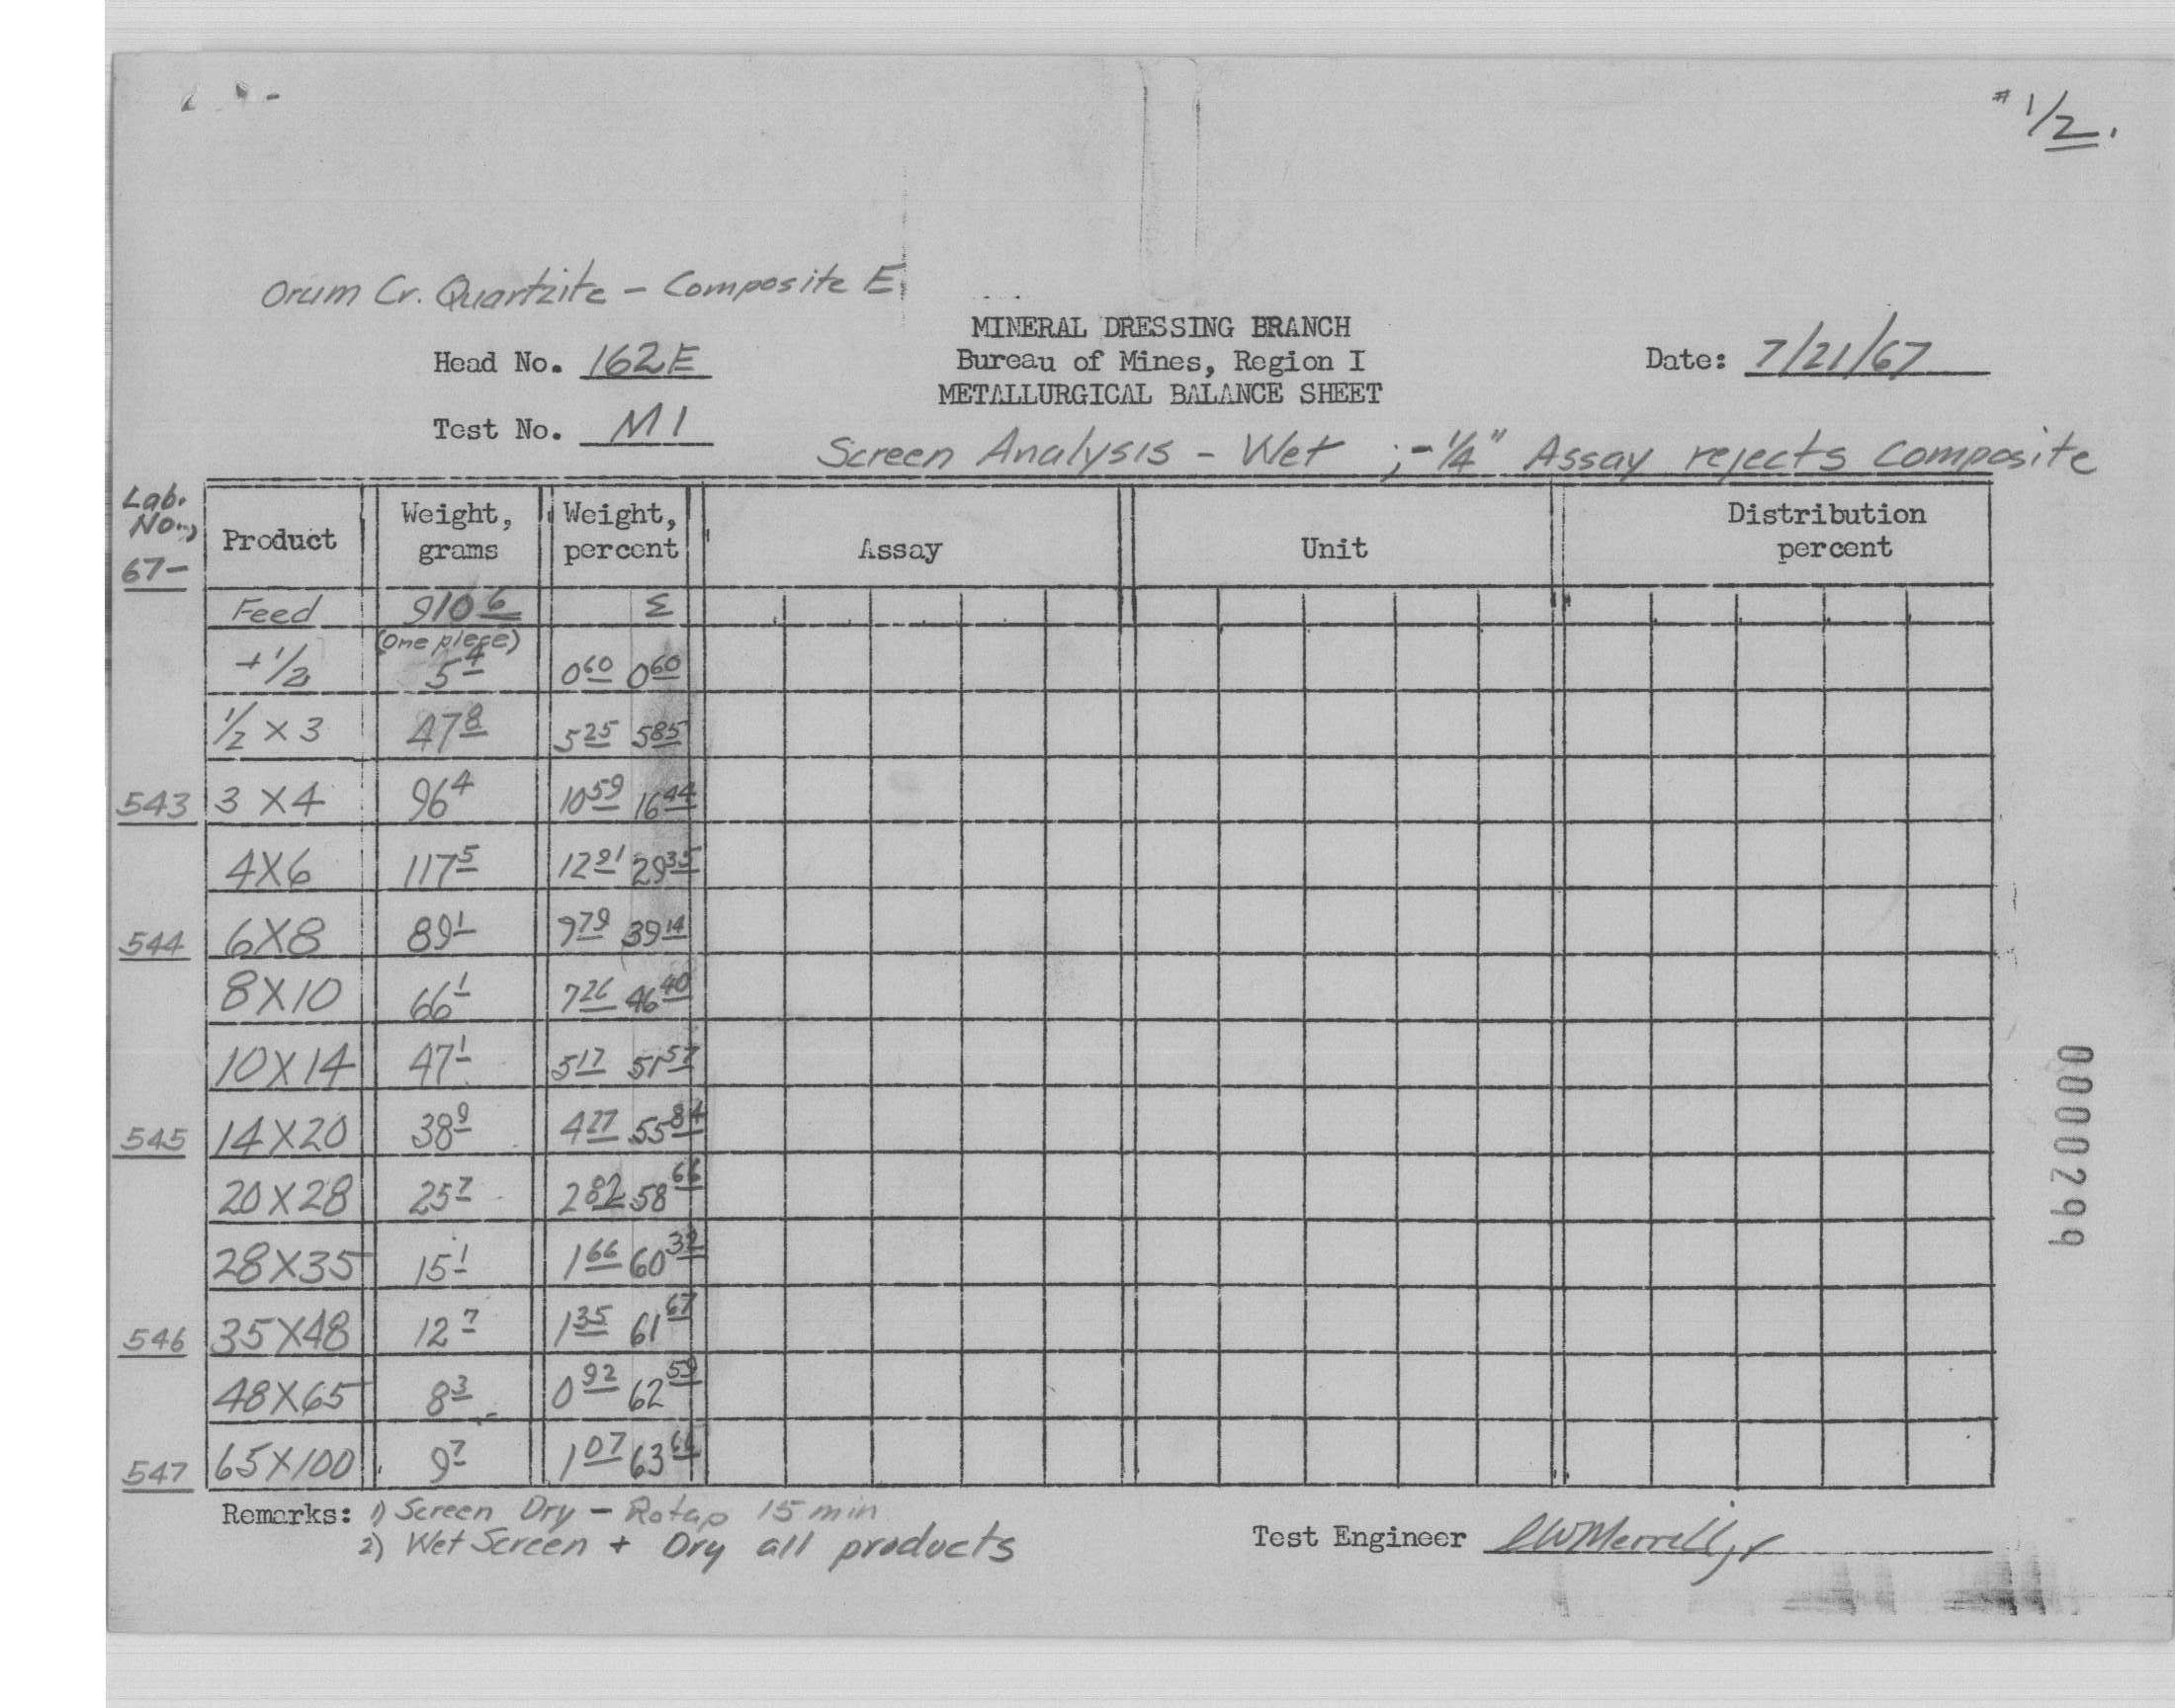 # 1/2.
Orum Cr. Quartzite - Composite E
MINERAL DRESSING BRANCH
Head No. 162E Bureau of Mines, Region I Date: 7/21/67
METALLURGICAL BALANCE SHEET
Test No. M1
Screen Analysis - Wet ; -1/4" Assay rejects composite
Lab. No., 67-
Product Weight, grams Weight, percent Assay Unit Distribution percent
Feed 910 6 Σ
(one piece)
+1/2 5 4 0 60 0 60
1/2 X 3 47 8 5 25 5 85
543 3 X 4 96 4 10 59 16 44
4X6 117 5 12 91 29 35
544 6X8 89 1 9 79 39 14
8X10 66 1 7 26 46 40
10X14 47 1 5 17 51 57
545 14X20 38 9 4 27 55 84
20X28 25 7 2 82 58 66
28X35 15 1 1 66 60 32
546 35X48 12 7 1 35 61 67
48X65 8 3 0 92 62 59
547 65X100 9 7 1 07 63 66
Remarks: 1) Screen Dry - Rotap 15 min
2) Wet Screen + Dry all products
Test Engineer CWMerrill, Jr
0000299